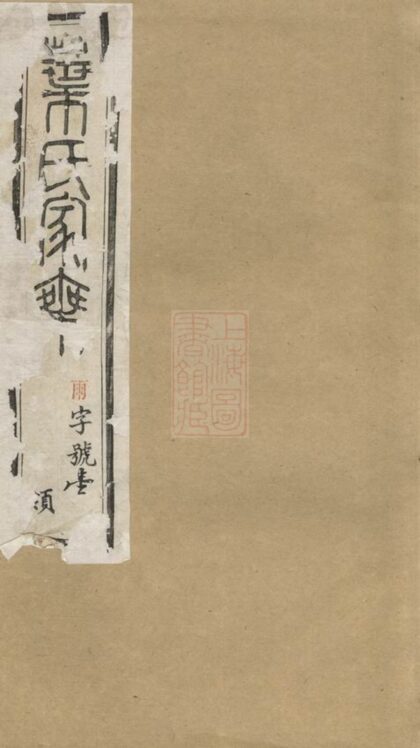 葉氏家乘
雨字號壹
須
上海圖
書館藏